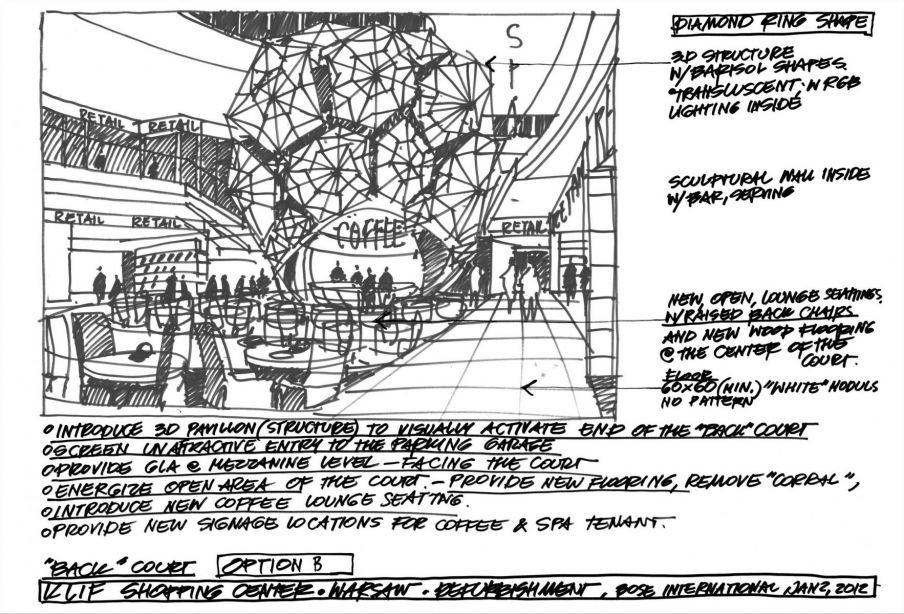 DIAMOND RING SHAPE
3D STRUCTURE
W/BARISOL SHAPES.
TRANSLUSCENT. W RGB
LIGHTING INSIDE
SCULPTURAL WALL INSIDE
W/BAR, SERVING
NEW, OPEN, LOUNGE SEATINGS,
W/RAISED BACK CHAIRS
AND NEW WOOD FLOORING
@ THE CENTER OF THE
COURT.
FLOOR
60x60(MIN.) "WHITE" MODULS
NO PATTERN
S
P
RETAIL
RETAIL
RETAIL
RETAIL
COFFEE
RETAIL
RETAIL
o INTRODUCE 3D PAVILION (STRUCTURE) TO VISUALLY ACTIVATE END OF THE "BACK" COURT
o SCREEN UNATRACTIVE ENTRY TO THE PARKING GARAGE
o PROVIDE GLA @ MEZZANINE LEVEL – FACING THE COURT
o ENERGIZE OPEN AREA OF THE COURT. – PROVIDE NEW FLOORING, REMOVE "CORRAL",
o INTRODUCE NEW COFFEE LOUNGE SEATING.
o PROVIDE NEW SIGNAGE LOCATIONS FOR COFFEE & SPA TENANT.
"BACK" COURT OPTION B
KLIF SHOPPING CENTER • WARSAW • REFURBISHMENT, BOSE INTERNATIONAL, JAN 2, 2012